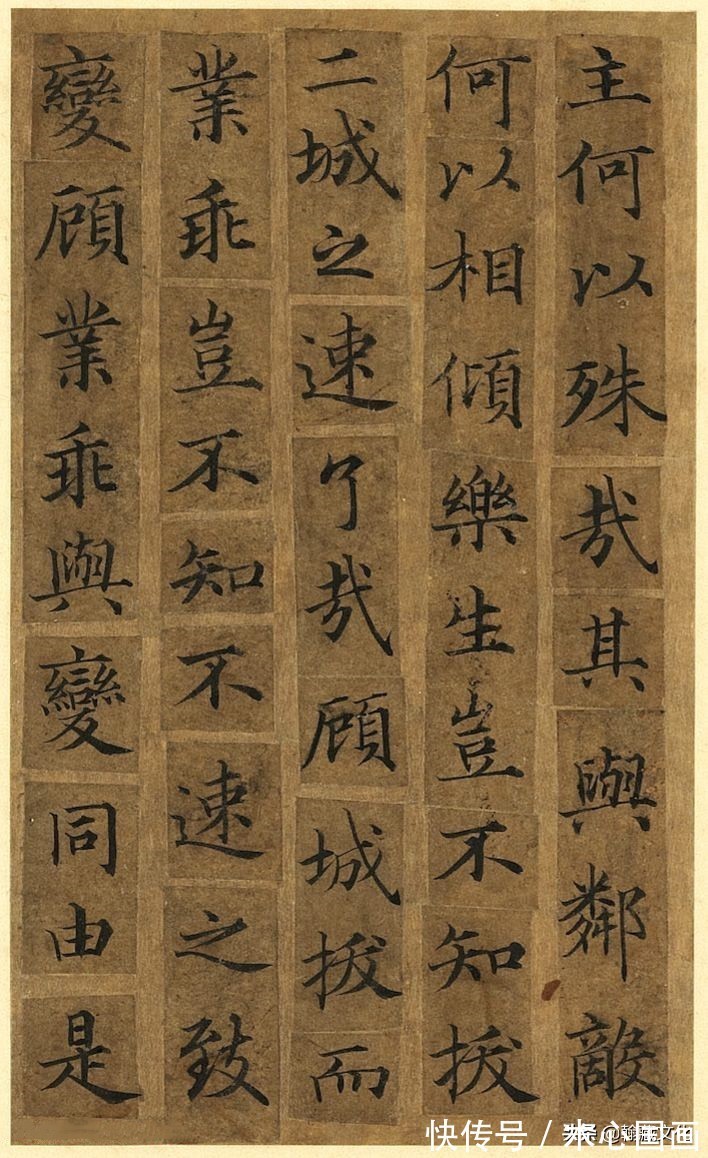 主何以殊哉其與鄰敵
何以相傾樂生豈不知拔
二城之速了哉顧城拔而
業乖豈不知不速之致
變顧業乖與變同由是
快传号 / 心国画